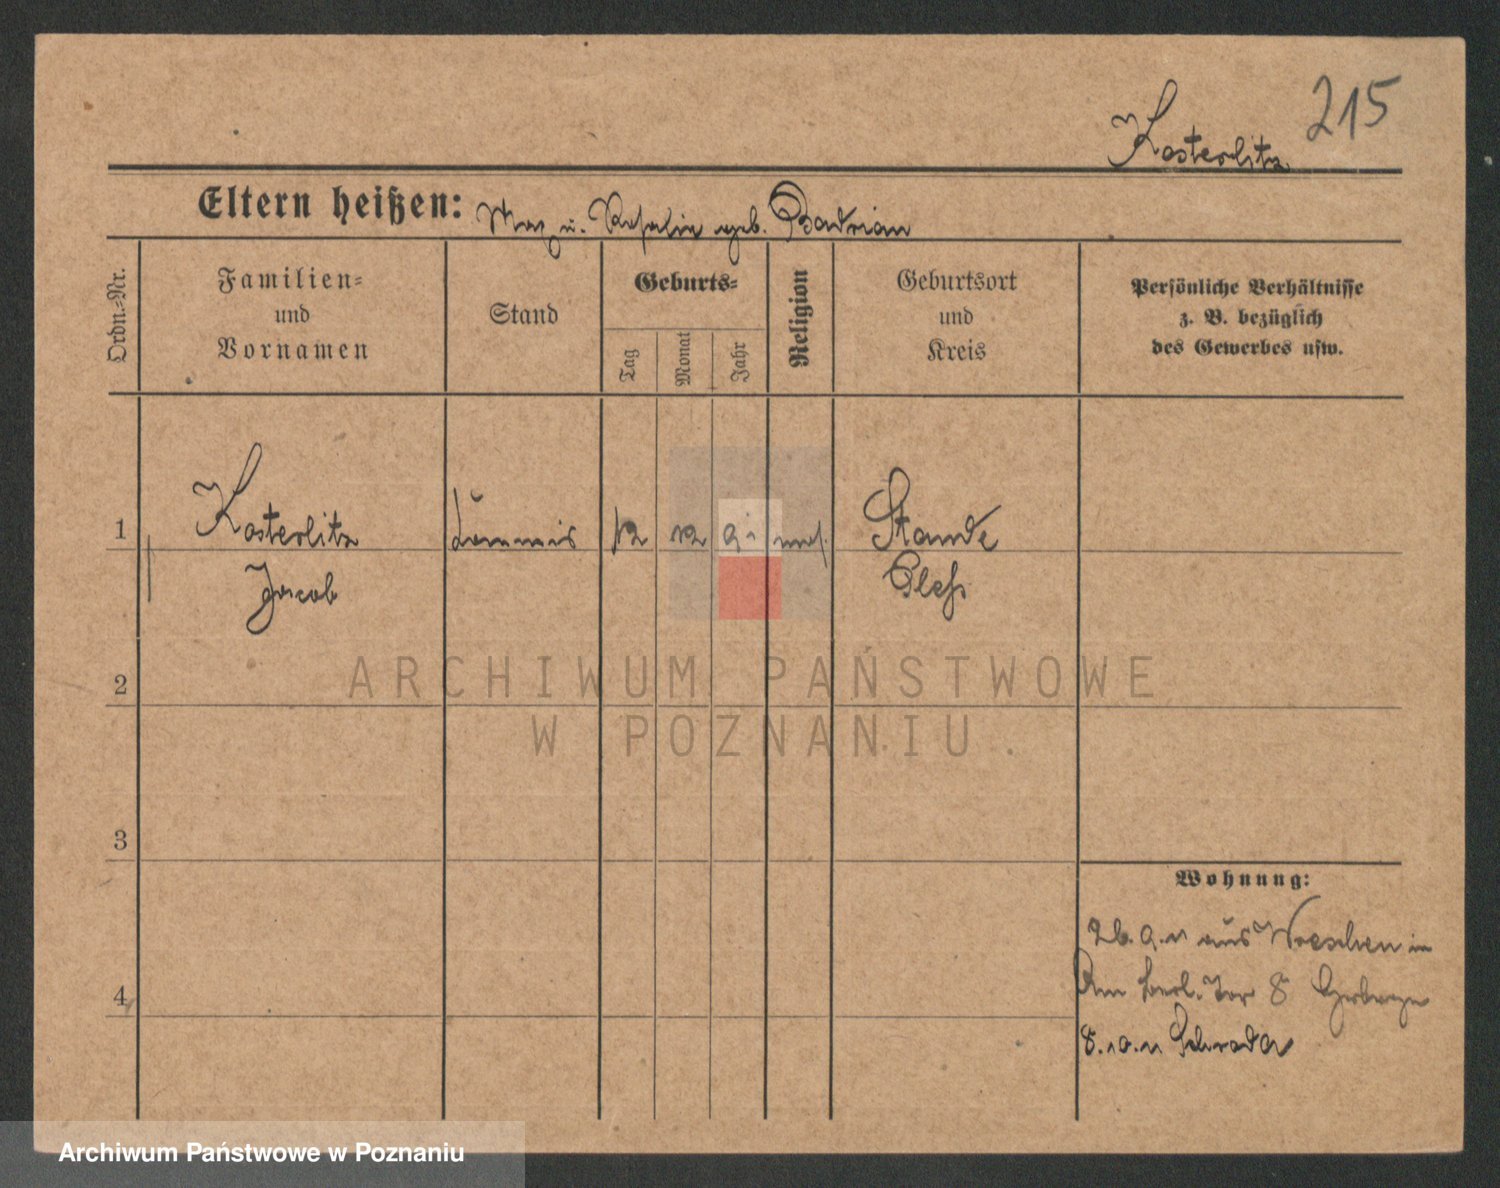 215
Kosterlitz
Eltern heißen: Max u. Rosalie geb. Badrian
Ordn.-Nr.
Familien-
und
Vornamen
Stand
Geburts-
Tag
Monat
Jahr
Religion
Geburtsort
und
Kreis
Persönliche Verhältnisse
z. B. bezüglich
des Gewerbes usw.
1
Kosterlitz
Kommis
12
12
91
mos.
Staude
Jacob
Pless
2
ARCHIWUM PAŃSTWOWE
W POZNANIU.
3
Wohnung:
26.9.11 aus Wreschen in
Am Berl. Tor 8
4
8.10.11 Schroda
Archiwum Państwowe w Poznaniu